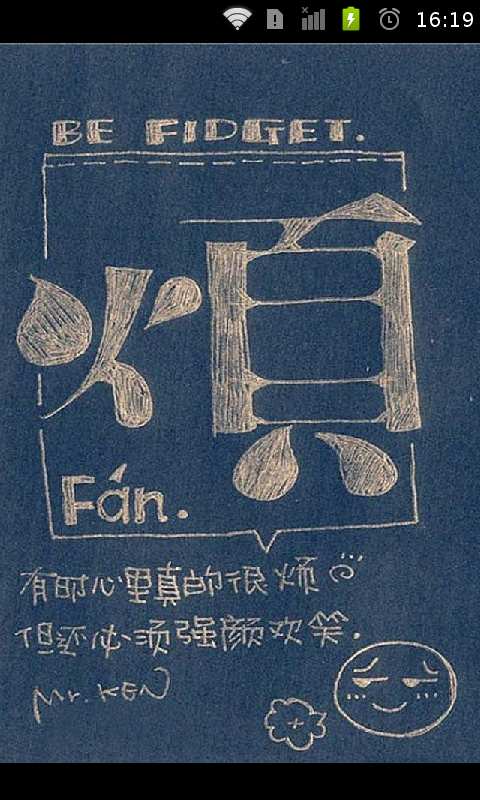 16:19
BE FIDGET.
煩
Fán.
有时心里真的很烦
但还必须强颜欢笑.
Mr. KEN